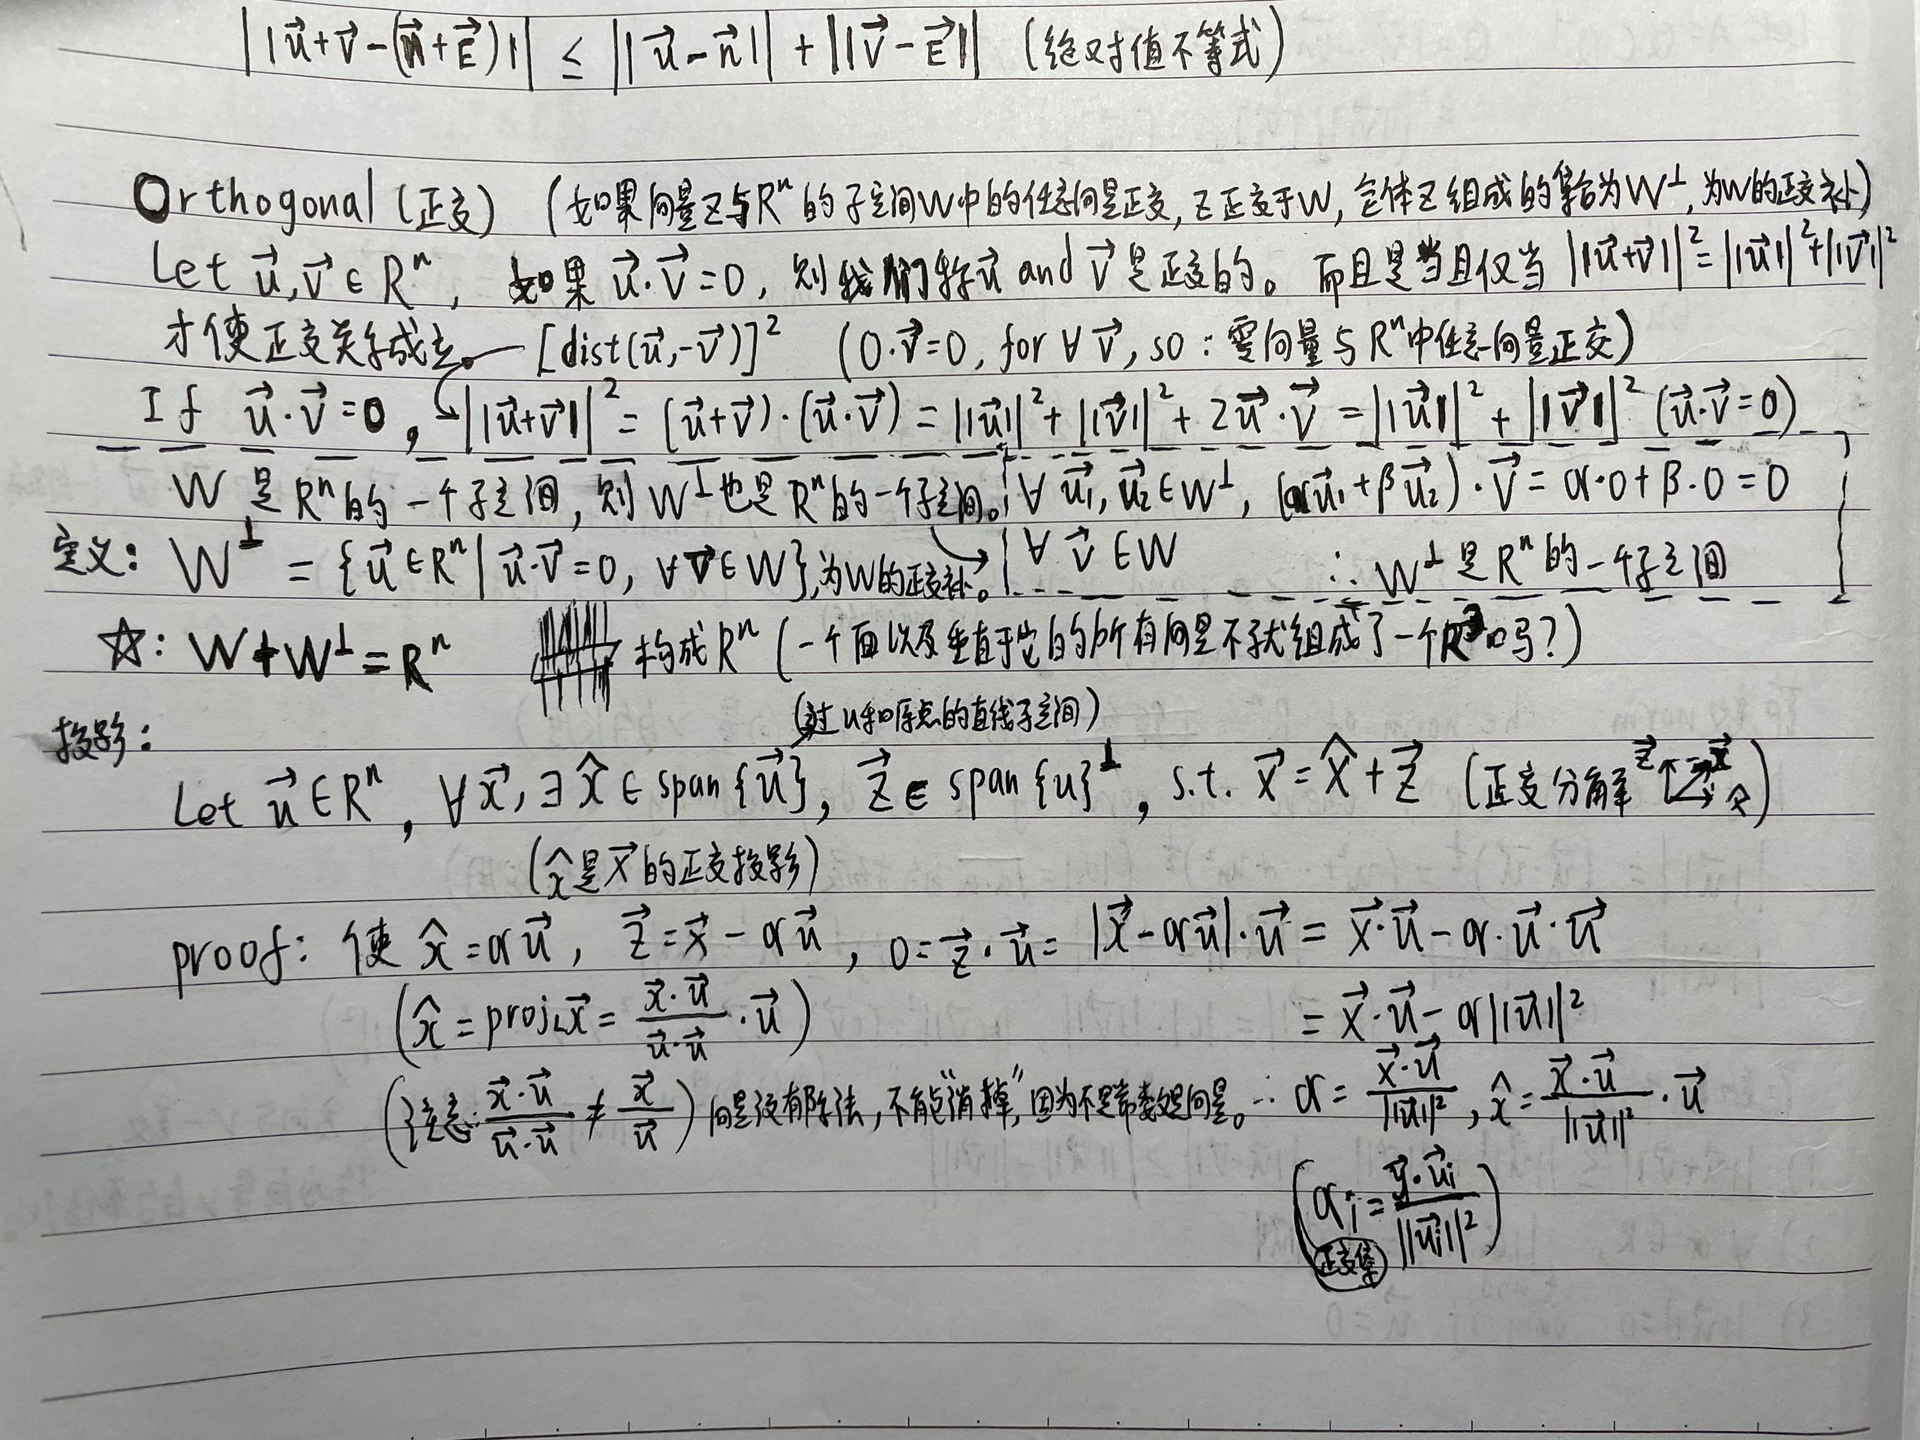 ||u⃗+v⃗-(n⃗+E⃗)|| ≤ ||u⃗-n⃗|| + ||v⃗-E⃗|| (绝对值不等式)
Orthogonal (正交) (如果向量z与Rⁿ的子空间W中的任意向量正交, z正交于W, 全体z组成的集合为W⊥, 为W的正交补)
Let u⃗,v⃗∈Rⁿ, 如果 u⃗·v⃗=0, 则我们称u⃗ and v⃗ 是正交的。 而且是当且仅当 ||u⃗+v⃗||²=||u⃗||²+||v⃗||²
才使正交关系成立。 [dist(u⃗,-v⃗)]² (0·v⃗=0, for ∀v⃗, so: 零向量与Rⁿ中任意向量正交)
If u⃗·v⃗=0, ||u⃗+v⃗||² = (u⃗+v⃗)·(u⃗·v⃗) = ||u⃗||² + ||v⃗||² + 2u⃗·v⃗ = ||u⃗||² + ||v⃗||² (u⃗·v⃗=0)
W 是Rⁿ的一个子空间, 则W⊥也是Rⁿ的一个子空间。 ∀ u⃗₁, u⃗₂∈W⊥, (αu⃗₁+βu⃗₂)·v⃗ = α·0+β·0=0
定义: W⊥ = {u⃗∈Rⁿ | u⃗·v⃗=0, ∀v⃗∈W}, 为W的正交补。 ∀ v⃗∈W ∴ W⊥是Rⁿ的一个子空间
☆: W+W⊥=Rⁿ 构成Rⁿ (一个面以及垂直于它的所有向量不就组成了一个R³吗?)
(过u和原点的直线子空间)
投影:
Let u⃗∈Rⁿ, ∀x⃗, ∃ x̂∈span{u⃗}, z⃗∈span{u}⊥, s.t. x⃗=x̂+z⃗ (正交分解 z⃗ x⃗ x̂)
(x̂是x⃗的正交投影)
proof: 使 x̂=αu⃗, z⃗=x⃗-αu⃗, 0=z⃗·u⃗= |x⃗-αu⃗|·u⃗ = x⃗·u⃗-α·u⃗·u⃗
(x̂ = proj_L x⃗ = x⃗·u⃗/u⃗·u⃗ · u⃗) = x⃗·u⃗-α||u⃗||²
(注意: x⃗·u⃗/u⃗·u⃗ ≠ x⃗/u⃗) 向量没有除法, 不能"消掉", 因为不是常数是向量。 ∴ α= x⃗·u⃗/||u⃗||², x̂= x⃗·u⃗/||u⃗||² · u⃗
(αi = y⃗·u⃗i/||u⃗i||²)
正交集